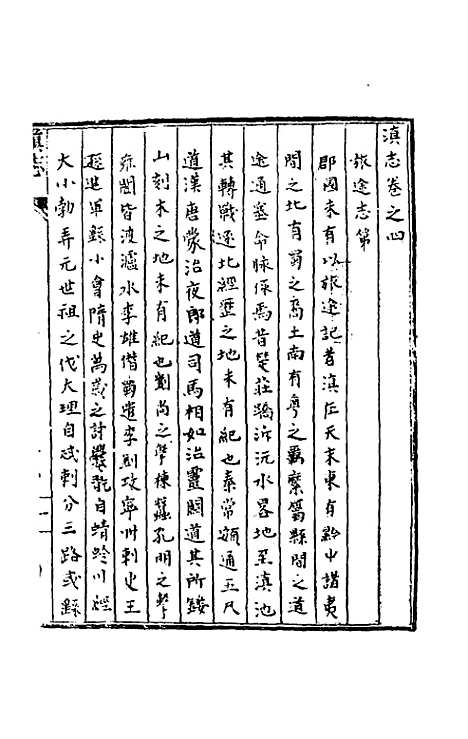 滇志卷之四
旅途志第
郡國未有以旅途記者滇在天末東有黔中諸夷
間之北有蜀之烏土南有粤之羈縻篤縣間之道
途通塞命脉係焉昔楚莊蹻泝沅水畧地至滇池
其轉戰逐北經歷之地未有紀也秦常頞通五尺
道漢唐蒙治夜郎道司馬相如治靈關道其所鏤
山刻木之地未有紀也劉尚之擊棟蠶孔明之擊
雍闓皆渡瀘水李雄僭蜀遣李釗攻寧州刺史王
遜進軍蘇小會隋史萬歲之討爨翫自蜻蛉川經
大小勃弄元世祖之伐大理自忒剌分三路或録
滇志